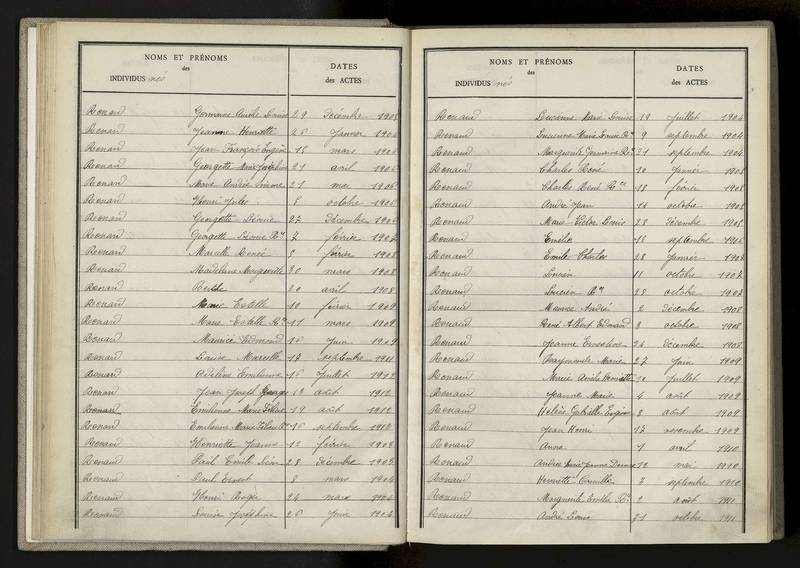 NOMS ET PRÉNOMS
des
INDIVIDUS nés
DATES
des ACTES
Renan Germaine 29 décembre 1905
Renan Jeanne Henriette 26 janvier 1906
Renan Jean François Eugène 15 mars 1906
Renan Georgette 21 avril 1906
Renan Marie Andrée 21 mai 1906
Renan Henri Jules 8 octobre 1906
Renan Georgette Léonie 27 décembre 1906
Renan Georgette Léonie Rn 7 février 1907
Renan Marcelle Renée 5 février 1908
Renan Madeleine Marguerite 30 mars 1908
Renan 20 avril 1908
Renan Marie Estelle 10 février 1909
Renan Marie Estelle Rn 11 mars 1909
Renan Maurice Edmond 16 juin 1909
Renan Louise Marcelle 17 septembre 1911
Renan Adeline Emilienne 16 juillet 1912
Renan Jean Joseph Georges 13 août 1912
Renan Emilienne Marie 19 août 1912
Renan Emilienne Marie septembre 1912
Renaud Henriette Jeanne 12 février 1903
Renaud Paul Emile Léon 28 décembre 1903
Renaud Paul Ernest 8 mars 1904
Renaud Henri Roger 24 mars 1904
Renaud Louise Joséphine 26 juin 1904
NOMS ET PRÉNOMS
des
INDIVIDUS nés
DATES
des ACTES
Renaud Marie Louise 19 juillet 1904
Renaud Marie Louise Rn 9 septembre 1904
Renaud Marguerite Germaine Rn 21 septembre 1904
Renaud Charles René 10 janvier 1905
Renaud Charles René Rn 18 février 1905
Renaud André Jean 16 octobre 1905
Renaud Marie Victor Denis 28 décembre 1905
Renaud Emélie 18 septembre 1906
Renaud Emile Charles 28 janvier 1907
Renaud Lucien 11 octobre 1907
Renaud Lucien Rn 28 octobre 1907
Renaud Maurice André 2 décembre 1908
Renaud René Albert Edmond 8 octobre 1908
Renaud Jeanne 24 décembre 1908
Renaud Raymonde Marie 27 juin 1909
Renaud Marie Amélie Henriette 10 juillet 1909
Renaud Jeanne Marie 4 août 1909
Renaud Hélène Gabrielle 8 août 1909
Renaud Jean Henri 17 novembre 1909
Renaud Anna 7 avril 1910
Renaud Andrée Jeanne Denise 12 mai 1910
Renaud Henriette Camille 3 septembre 1910
Renaud Marguerite Emilie Rn 2 août 1911
Renaud André Louis 21 octobre 1911